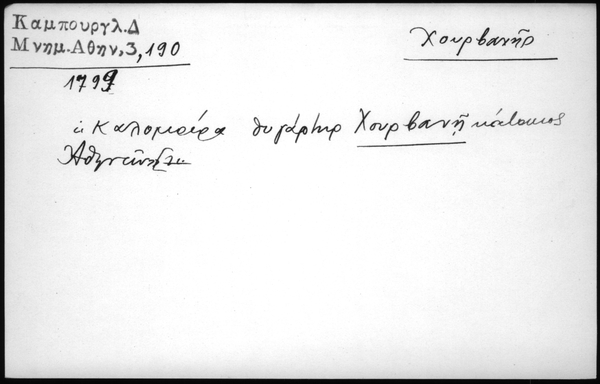 Καμπουργλ.Δ
Μνημ.Αθην.3,190
Χουρβανῆς
1799
ἡ Καλομοίρα θυγάτηρ Χουρβανῆ κάτοικος
Ἀθηνῶν